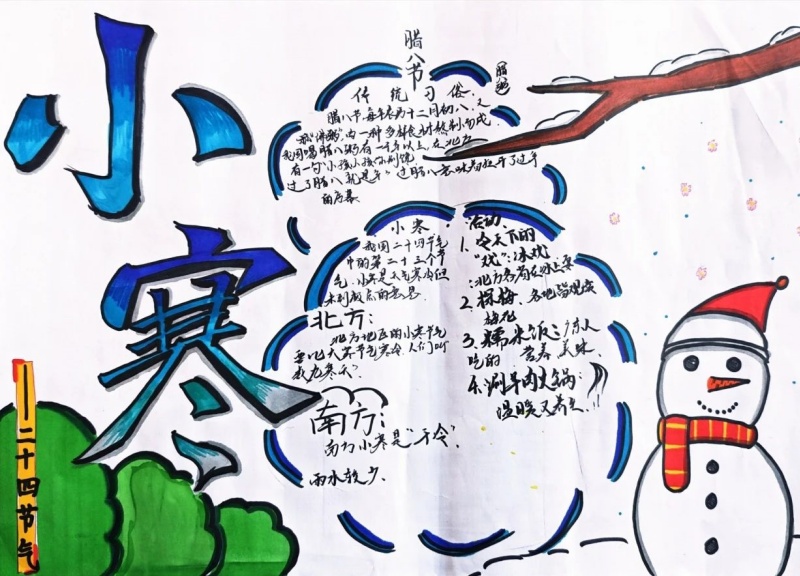 小寒
二十四节气
腊八节
传统习俗
腊八节,每年农历十二月初八,又
叫"腊粥"由一种多样食材熬制而成.
我国喝腊八粥有一千多以上,在北方
有一句"小孩小孩你别馋
过了腊八就是年"过腊八意味着拉开了过年
的序幕.
小寒
我国二十四节气
中的第二十三个节
气,小寒是天气寒冷但
未到极点的意思.
北方:
北方地区的小寒节气
要比大寒节气寒冷.人们叫
数九寒天?
南方:
南方小寒是"干冷".
雨水较少.
活动
1. 冬天下的
"戏":冰戏
:北方多简在冰上耍
2. 探梅.
梅花
3. 糯米饭:广东人
吃的 营养 美味.
4. 涮羊肉火锅:
温暖又养生!!